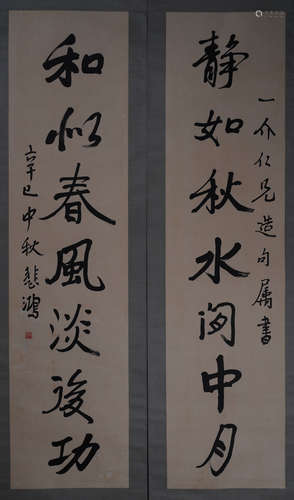 一介仁兄造句属書
静如秋水闲中月
和似春風淡後功
辛巳中秋悲鴻